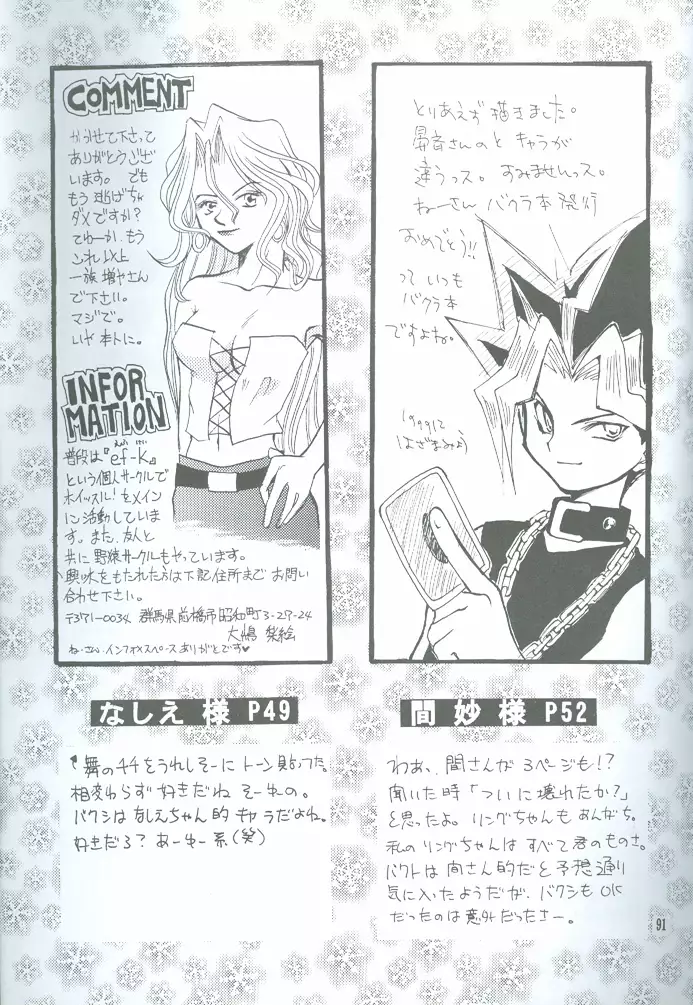 COMMENT
かかせて下さって
ありがとうござ
います。でも
もう逃げちゃ
ダメですか?
てゆーか、もう
これ以上
一族増やさん
で下さい。
マジで。
いや本トに。
INFOR
MATION
普段は『ef-k』
という個人サークルで
ホイッスル!をメイン
に活動していま
す。また、友人と
共に野猿サークルもやっています。
興味をもたれた方は下記住所までお問い
合わせ下さい。
〒371-0034 群馬県前橋市昭和町3-27-24
大嶋 梨絵
ねーさん、インフォメスペースありがとです♥
とりあえず描きました。
昇音さんのとキャラが
違うっス。すみませんっス。
ねーさん バクラ本発行
おめでとう!!
っていつも
バクラ本
ですよね。
1999.12
はざまみょう
なしえ 様 P49
間 妙 様 P52
舞のチチをうれしそーにトーン貼ってた。
相変わらず好きだねそーゆの。
バクシはなしえちゃん的キャラだよね。
好きだろ?あーゆー系(笑)
わあ、間さんが3ページも!?
聞いた時「ついに壊れたか?」
と思ったよ。リングちゃんもあんがち。
私のリングちゃんはすべて君のものさ。
バクトは間さん的だと予想通り
気に入ったようだが、バクシもOK
だったのは意外だったさー。
91